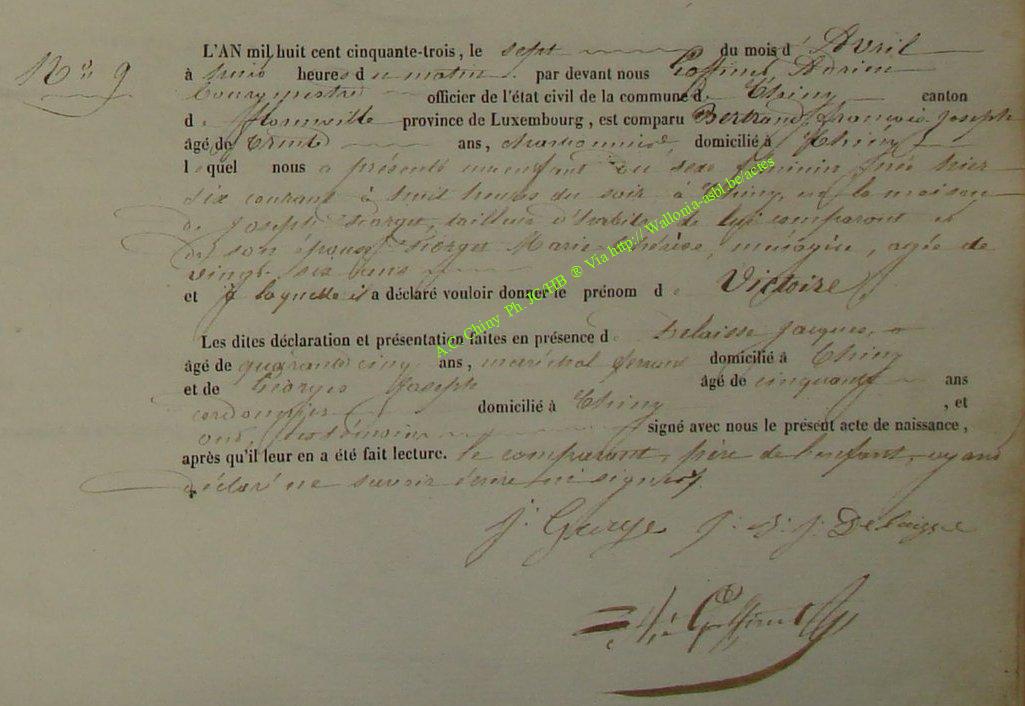 N° 9
L'AN mil huit cent cinquante-trois, le sept du mois d'Avril
à huit heures du matin par devant nous Goffinet Adrien
bourgmestre officier de l'état civil de la commune de Chiny canton
de florenville province de Luxembourg, est comparu Bertrand, françois joseph
âgé de trente ans, charbonnier, domicilié à Chiny
lequel nous a présenté un enfant du sexe féminin, née hier
six courant à huit heures du soir à Chiny, en la maison
de joseph tailleur d'habits de lui comparant et
de son épouse Marie Thérèse, ménagère, agée de
vingt six ans
et à laquelle il a déclaré vouloir donner le prénom de Victoire
Les dites déclaration et présentation faites en présence de Delaisse jacques,
âgé de quarante cinq ans, maréchal ferrant domicilié à Chiny
et de Georges Joseph âgé de cinquante ans
cordonnier domicilié à Chiny, et
ont, les témoins signé avec nous le présent acte de naissance,
après qu'il leur en a été fait lecture. le comparant, père de l'enfant, ayant
déclaré ne savoir écrire ni signer
j. George J. j. Delaisse
Goffinet
A.C. Chiny Ph. JC/HB ® Via http:// Wallonia-asbl.be/actes